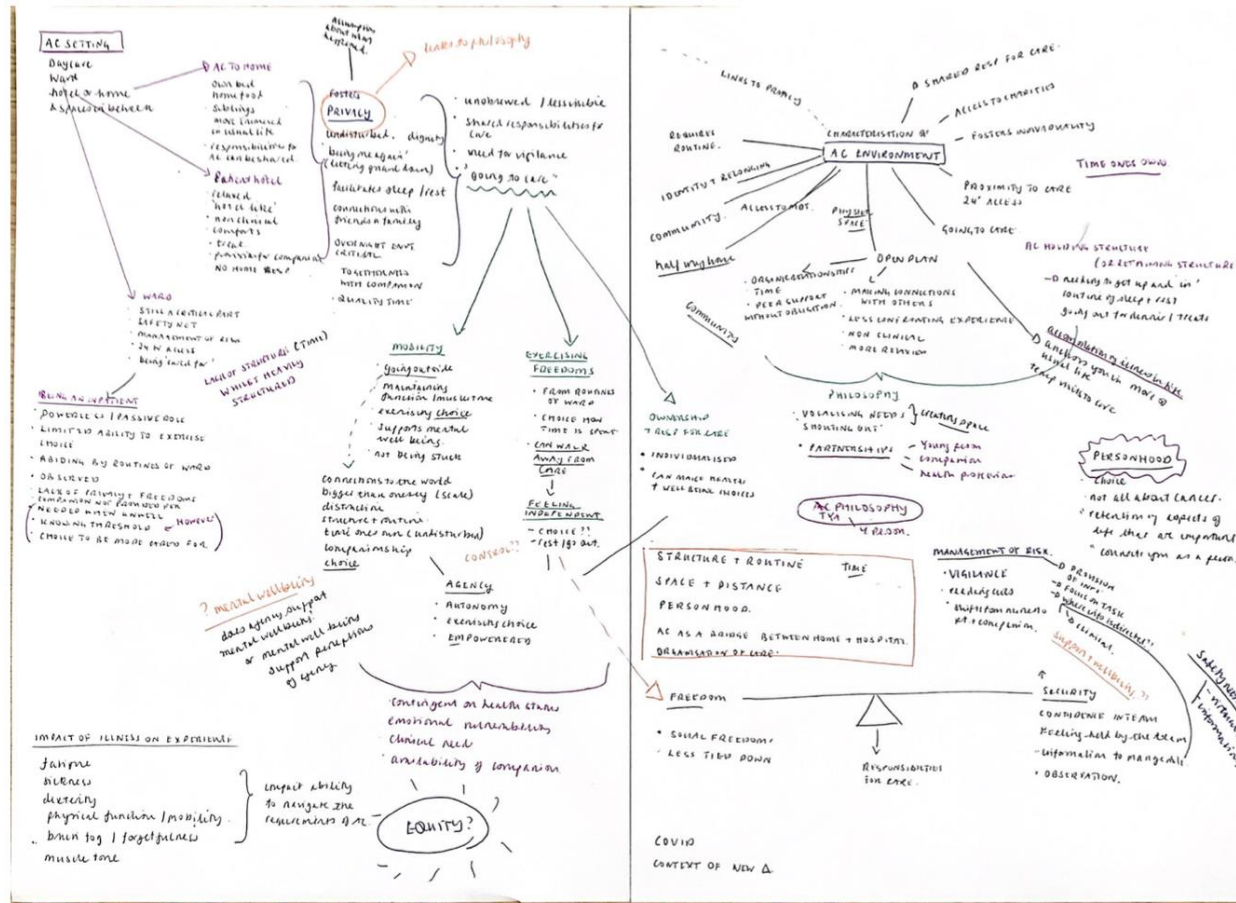 AC SETTING
Daycare
Ward
hotel or home
& spaces in between
AC TO HOME
own bed
home food
siblings
more immersed
in usual life
responsibilities to
AC can be shared.
Patient hotel
relaxed
'hotel like'
non clinical
comforts
treat
provision for companion
NO HOME RESP
Assumptions
about what
happened.
links to philosophy
Fosters
PRIVACY
undisturbed, dignity
'being me again'
(letting guard down)
facilitates sleep / rest
connections with
friends & family
OVERNIGHT ENVT
CRITICAL
TOGETHERNESS
WITH COMPANION
QUALITY TIME
unobserved / less visible
shared responsibilities for
care
need for vigilance
"going to care"
WARD
STILL A CRITICAL PART
SAFETY NET
MANAGEMENT OF RISK
24 hr ACCESS
being 'cared for'
LACK OF STRUCTURE (TIME)
WHILST HEAVILY
STRUCTURED
BEING AN INPATIENT
POWERLESS / PASSIVE ROLE
LIMITED ABILITY TO EXERCISE
CHOICE
ABIDING BY ROUTINES OF WARD
OBSERVED
LACK OF PRIVACY + FREEDOMS
COMPANION NOT PROVIDED FOR
NEEDED WHEN UNWELL
KNOWING THRESHOLD
HOWEVER
CHOICE TO BE MORE CARED FOR.
MOBILITY
going outside
maintaining
function / muscle tone
exercising choice
supports mental
well being.
not being stuck
connections to the world
bigger than oneself (scale)
distraction
structure + routine
time ones own (undisturbed)
companionship
choice
EXERCISING
FREEDOMS
FROM ROUTINES
OF WARD
CHOICE HOW
TIME IS SPENT
CAN WALK
AWAY FROM
CARE
FEELING
INDEPENDENT
- CHOICE ??
- rest / go out.
CONTROL??
AGENCY
AUTONOMY
exercising choice
EMPOWERED
? mental wellbeing
does agency support
mental wellbeing.
or mental well being
support perceptions
of agency
contingent on health status
emotional vulnerability
clinical need
availability of companion.
IMPACT OF ILLNESS ON EXPERIENCE
fatigue
sickness
dexterity
physical function / mobility.
brain fog / forgetfulness
muscle tone
impact ability
to navigate the
requirements of AC
EQUITY?
LINKS TO PRIVACY
SHARED RESP FOR CARE.
ACCESS TO CHARITIES
FOSTERS INDIVIDUALITY
REQUIRES
ROUTINE.
CHARACTERISATION OF
AC ENVIRONMENT
IDENTITY + BELONGING
COMMUNITY.
ACCESS TO MDT.
half way house
PHYSICAL
SPACE
PROXIMITY TO CARE
24° ACCESS
GOING TO CARE
TIME ONES OWN
OPEN PLAN
ORGANIC RELATIONSHIPS
TIME
PEER SUPPORT
WITHOUT OBLIGATION.
COMMUNITY
MAKING CONNECTIONS
WITH OTHERS
LESS CONFRONTING EXPERIENCE
NON CLINICAL
MORE RELAXED
AC HOLDING STRUCTURE
(OR RETAINING STRUCTURE
needing to get up and in'
routine of sleep + rest
going out for dinner / treats
accomodation of illness in life
anchors you in more
usual life
PHILOSOPHY
VOCALISING NEEDS
SHOUTING OUT'
creating space
PARTNERSHIPS
Young person
companion
health professional
OWNERSHIP
+ RESP FOR CARE
INDIVIDUALISED
CAN MAKE HEALTH
+ WELLBEING CHOICES
AC PHILOSOPHY
TYA
PERSONHOOD
choice
not all about cancer.
retention of aspects of
life that are important
connects you as a person.
STRUCTURE + ROUTINE
TIME
SPACE + DISTANCE
PERSONHOOD.
AC AS A BRIDGE BETWEEN HOME + HOSPITAL
ORGANISATION OF CARE.
MANAGEMENT OF RISK.
VIGILANCE
PROVISION
OF INFO.
FOCUS ON TASK
clinical
FREEDOM
SOCIAL FREEDOMS
LESS TIED DOWN
RESPONSIBILITIES
FOR CARE.
SECURITY
CONFIDENCE IN TEAM
Feeling held by the team
information to manage
OBSERVATION.
Safety net
information
COVID
CONTEXT OF NEW Δ.